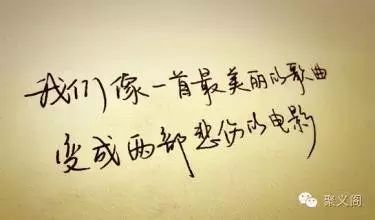 我们像一首最美丽的歌曲
变成两部悲伤的电影
聚义阁